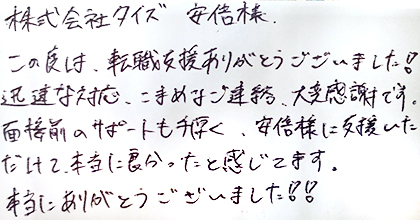 株式会社タイズ 安倍様.
この度は、転職支援ありがとうございました!!
迅速な対応、こまめなご連絡、大変感謝です。
面接前のサポートも手厚く、安倍様に支援いた
だけて、本当に良かったと感じてます。
本当にありがとうございました!!!